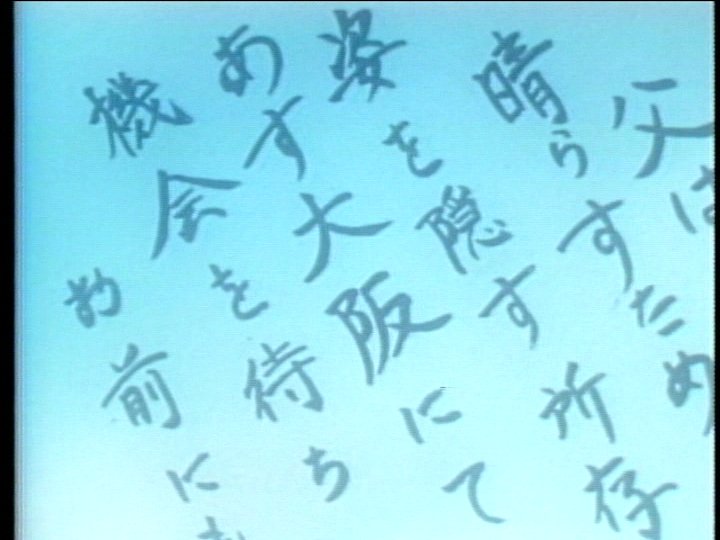 父は
晴らすため
姿を隠す所存
あす大阪にて
機会を待ち
お前に